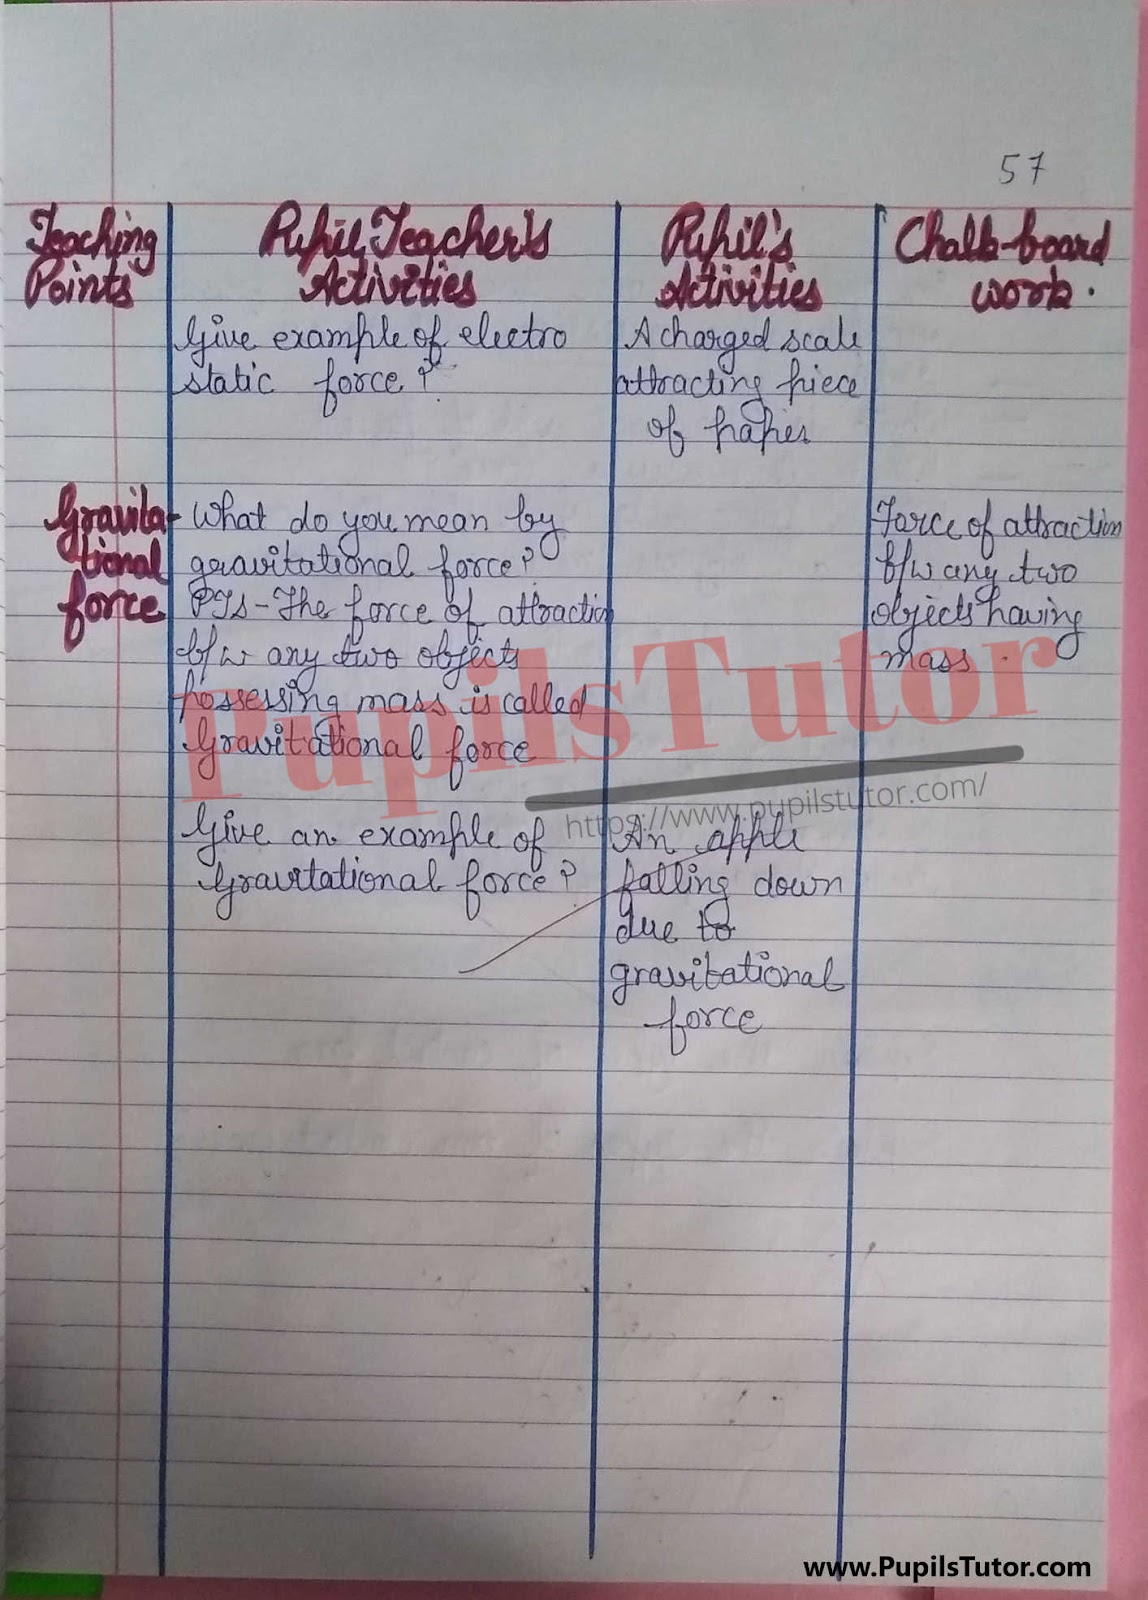 57
Teaching
Points
Pupil Teacher's
Activities
Pupil's
Activities
Chalk-board
work.
Give example of electro
static force?
A charged scale
attracting piece
of paper
Gravita-
tional
force
What do you mean by
gravitational force?
PTS-The force of attraction
b/w any two objects
possessing mass is called
Gravitational force
Force of attraction
b/w any two
objects having
mass.
Give an example of
Gravitational force?
An apple
falling down
due to
gravitational
force
PupilsTutor
https://www.pupilstutor.com/
www.PupilsTutor.com